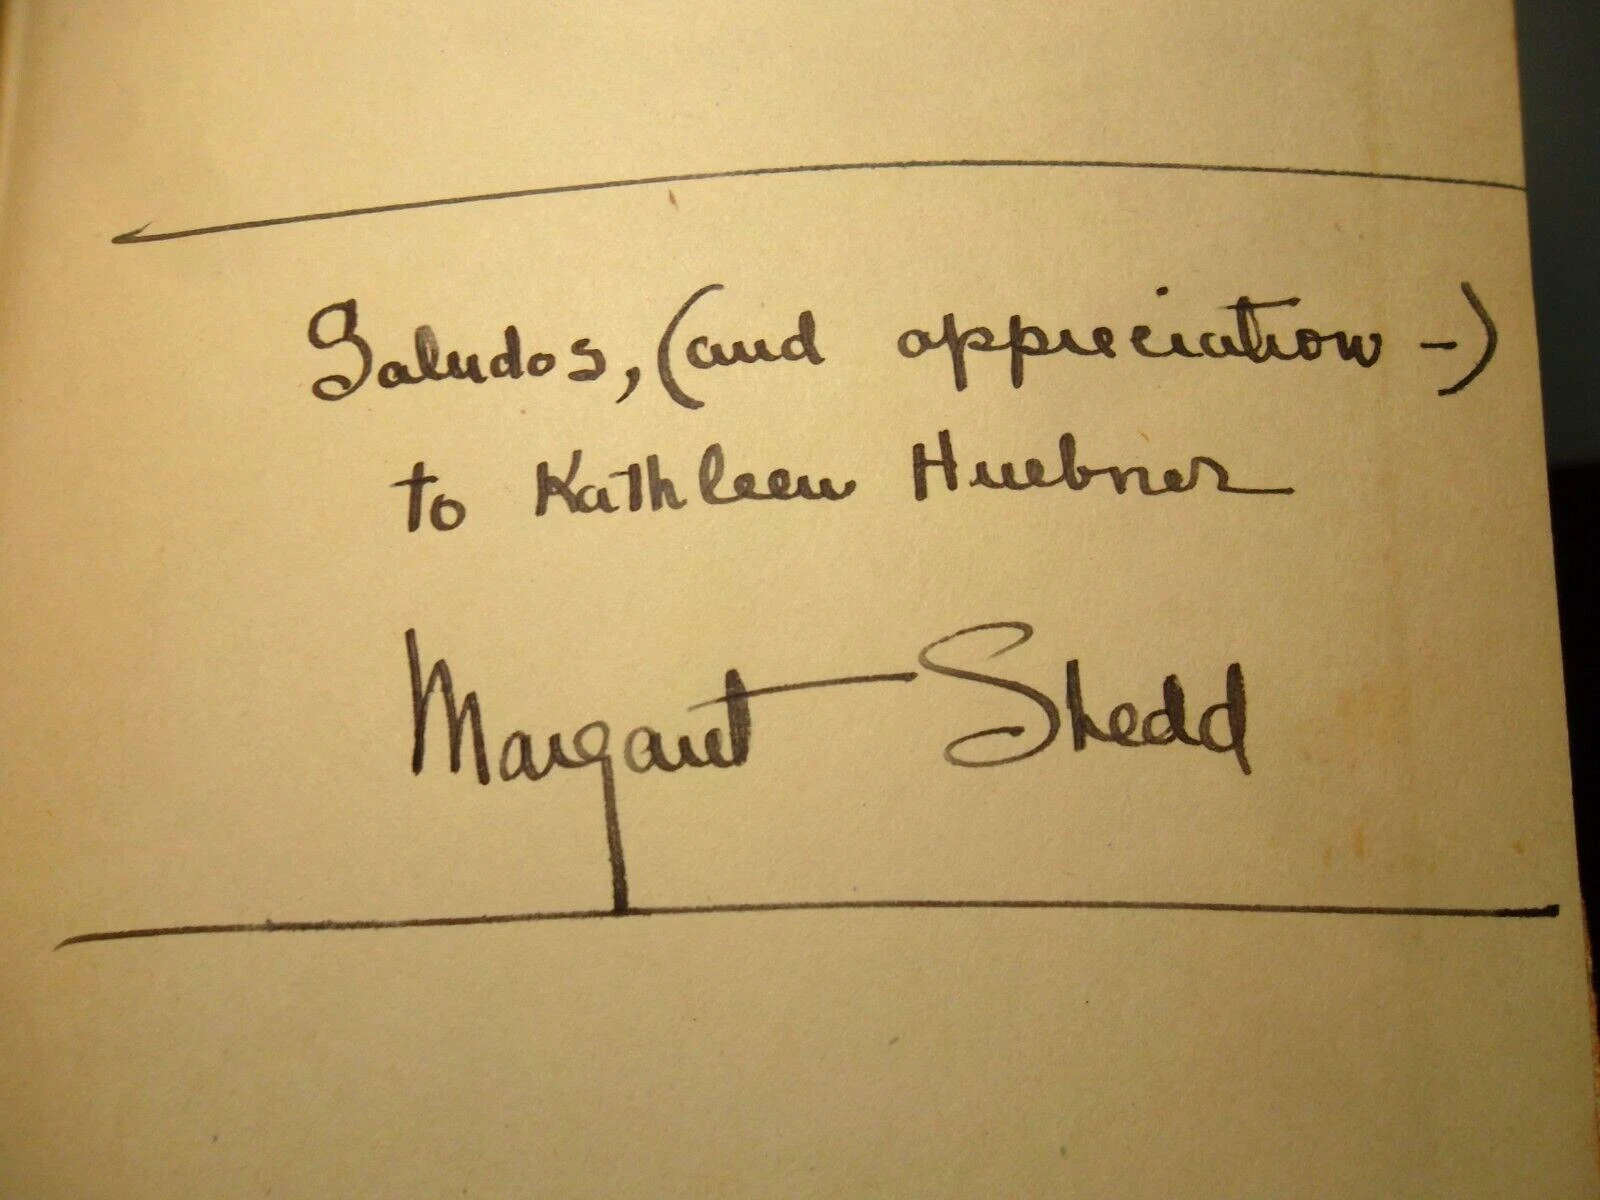 Saludos, (and appreciation -)
to Kathleen Huebner
Margaret Shedd